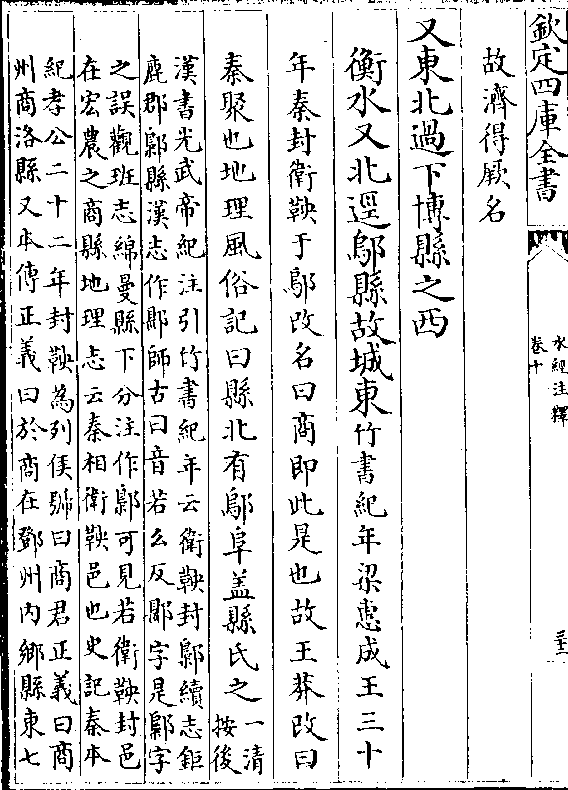 欽定四庫全書
水經注釋
卷十
三十二
故濟得厥名
又東北過下博縣之西
衡水又北逕鄔縣故城東竹書紀年梁惠成王三十
年秦封衛鞅于鄔改名曰商即此是也故王莽改曰
秦聚也地理風俗記曰縣北有鄔阜盖縣氏之
一清
按後
漢書光武帝紀注引竹書紀年云衛鞅封鄡續志鉅
鹿郡鄡縣漢志作鄥師古曰音若么反鄥字是鄡字
之誤觀班志綿曼縣下分注作鄡可見若衛鞅封邑
在宏農之商縣地理志云秦相衛鞅邑也史記秦本
紀孝公二十二年封鞅為列侯號曰商君正義曰商
州商洛縣又本傳正義曰於商在鄧州内鄉縣東七